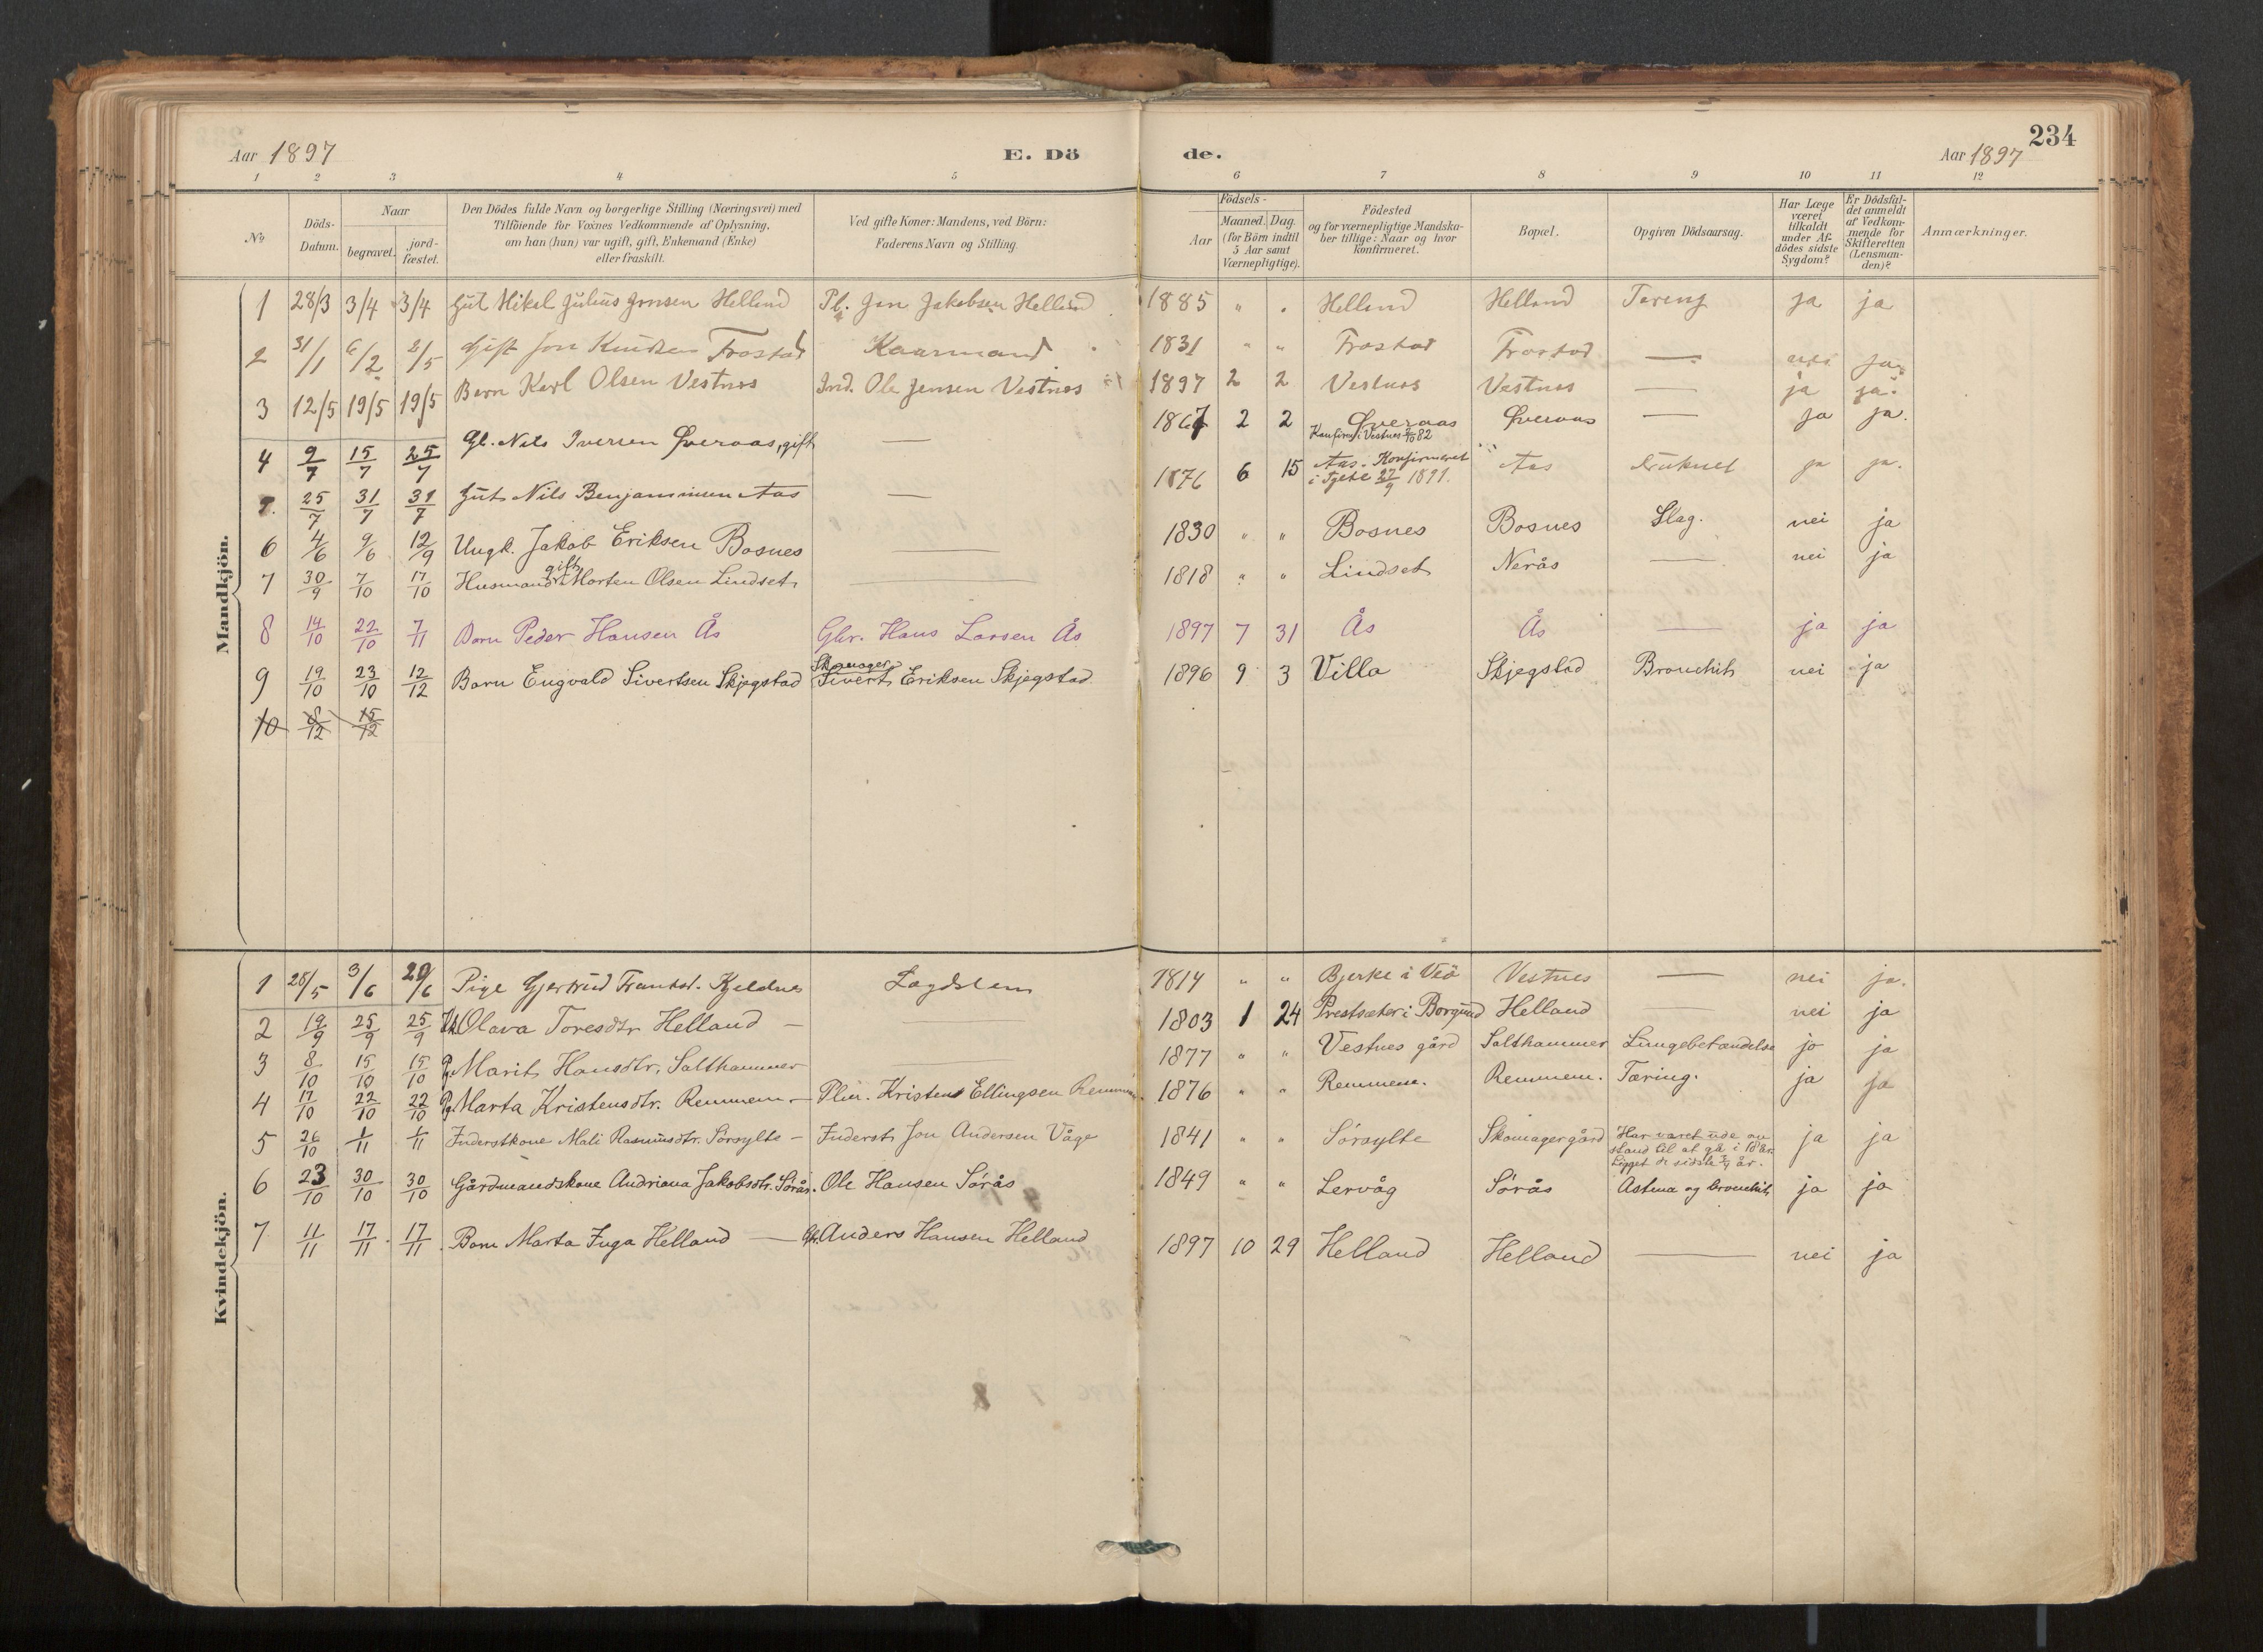 234
Aar 1897 E. Dö de. Aar 1897
1 2 3 4 5 6 7 8 9 10 11 12
No
Döds-
Datum.
Naar
begravet.
jord-
fæstet.
Den Dödes fulde Navn og borgerlige Stilling (Næringsvei) med
Tilföiende for Voxnes Vedkommende af Oplysning,
om han (hun) var ugift, gift, Enkemand (Enke)
eller fraskilt.
Ved gifte Koner: Mandens, ved Börn:
Faderens Navn og Stilling.
Födsels-
Aar
Maaned. Dag.
(for Börn indtil
5 Aar samt
Værnepligtige).
Födested
og for værnepligtige Mandska-
ber tillige: Naar og hvor
konfirmeret.
Bopæl.
Opgiven Dödsaarsag.
Har Læge
været
tilkaldt
under Af-
dödes sidste
Sygdom?
Er Dödsfal-
det anmeldt
af Vedkom-
mende for
Skifteretten
(Lensman-
den)?
Anmærkninger.
Mandkjön.
1 28/3 3/4 3/4 Gut Mikal Julius Jonsen Helland Pl. Jon Jakobsen Helland 1885 " " Helland Helland Tæring ja ja
2 31/1 6/2 2/5 Gift Jon Knudsen Trostad Kaarmand 1831 " " Trostad Trostad — nei ja
3 12/5 19/5 19/5 Barn Karl Olsen Vestnes Ind. Ole Jensen Vestnes 1897 2 2 Vestnes Vestnes — ja ja.
4 9/7 15/7 25/7 Gb. Nils Iversen Øveraas, gift — 1867 2 2 Øveraas Øveraas — ja ja.
Konfirm. i Vestnes 8/10 82
25/7 31/7 31/7 Gut Nils Benjaminsen Aas — 1876 6 15 Aas. Konfirmeret Aas ja ja.
27/9 1891.
6 4/6 9/6 12/9 Ungk. Jakob Eriksen Bosnes — 1830 " " Bosnes Bosnes Slag. nei ja
gift
7 30/9 7/10 17/10 Husmand Morten Olsen Lindset — 1818 " " Lindset Nerås — nei ja
8 14/10 22/10 7/11 Barn Peder Hansen Ås Gbr. Hans Larsen Ås 1897 7 31 Ås Ås — ja ja
Skomager
9 19/10 23/10 12/12 Barn Engvald Sivertsen Skjegstad Sivert Eriksen Skjegstad 1896 9 3 Villa Skjegstad Bronchit nei ja
10 8/12 15/12
Kvindekjön.
1 28/5 3/6 20/6 Pige Gjertrud Frantsd. Kjeldnes Lægdslem 1814 " " Bjerke i Veö Vestnes — nei ja.
2 19/9 25/9 25/9 Olava Toresdtr Helland — 1803 1 24 Prestsæter i Borgund Helland — nei ja
3 8/10 15/10 15/10 Pg. Marit Hansdtr. Salthammer — 1877 " " Vestnes gård Salthammer Lungebetændelse jo ja
4 17/10 22/10 22/10 Pg. Marta Kristensdtr. Remmem — Plm. Kristen Ellingsen Remmem 1876 " " Remmem. Remmem. Tæring. ja ja
5 26/10 1/11 1/11 Inderstkone Mali Rasmusdtr. Sørsylte — Inderst Jon Andersen Våge 1841 " " Sørsylte Skomagergård Har været ude av ja ja
stand til at gå i 18 år.
Ligget de sidste 3/4 år.
6 23/10 30/10 30/10 Gårdmandskone Andriana Jakobsdtr. Sørås. Ole Hansen Sørås 1849 " " Lervåg Sørås Astma og bronchit ja ja
7 11/11 17/11 17/11 Barn Marta Inga Helland — Gbr. Anders Hansen Helland 1897 10 29 Helland Helland — nei ja